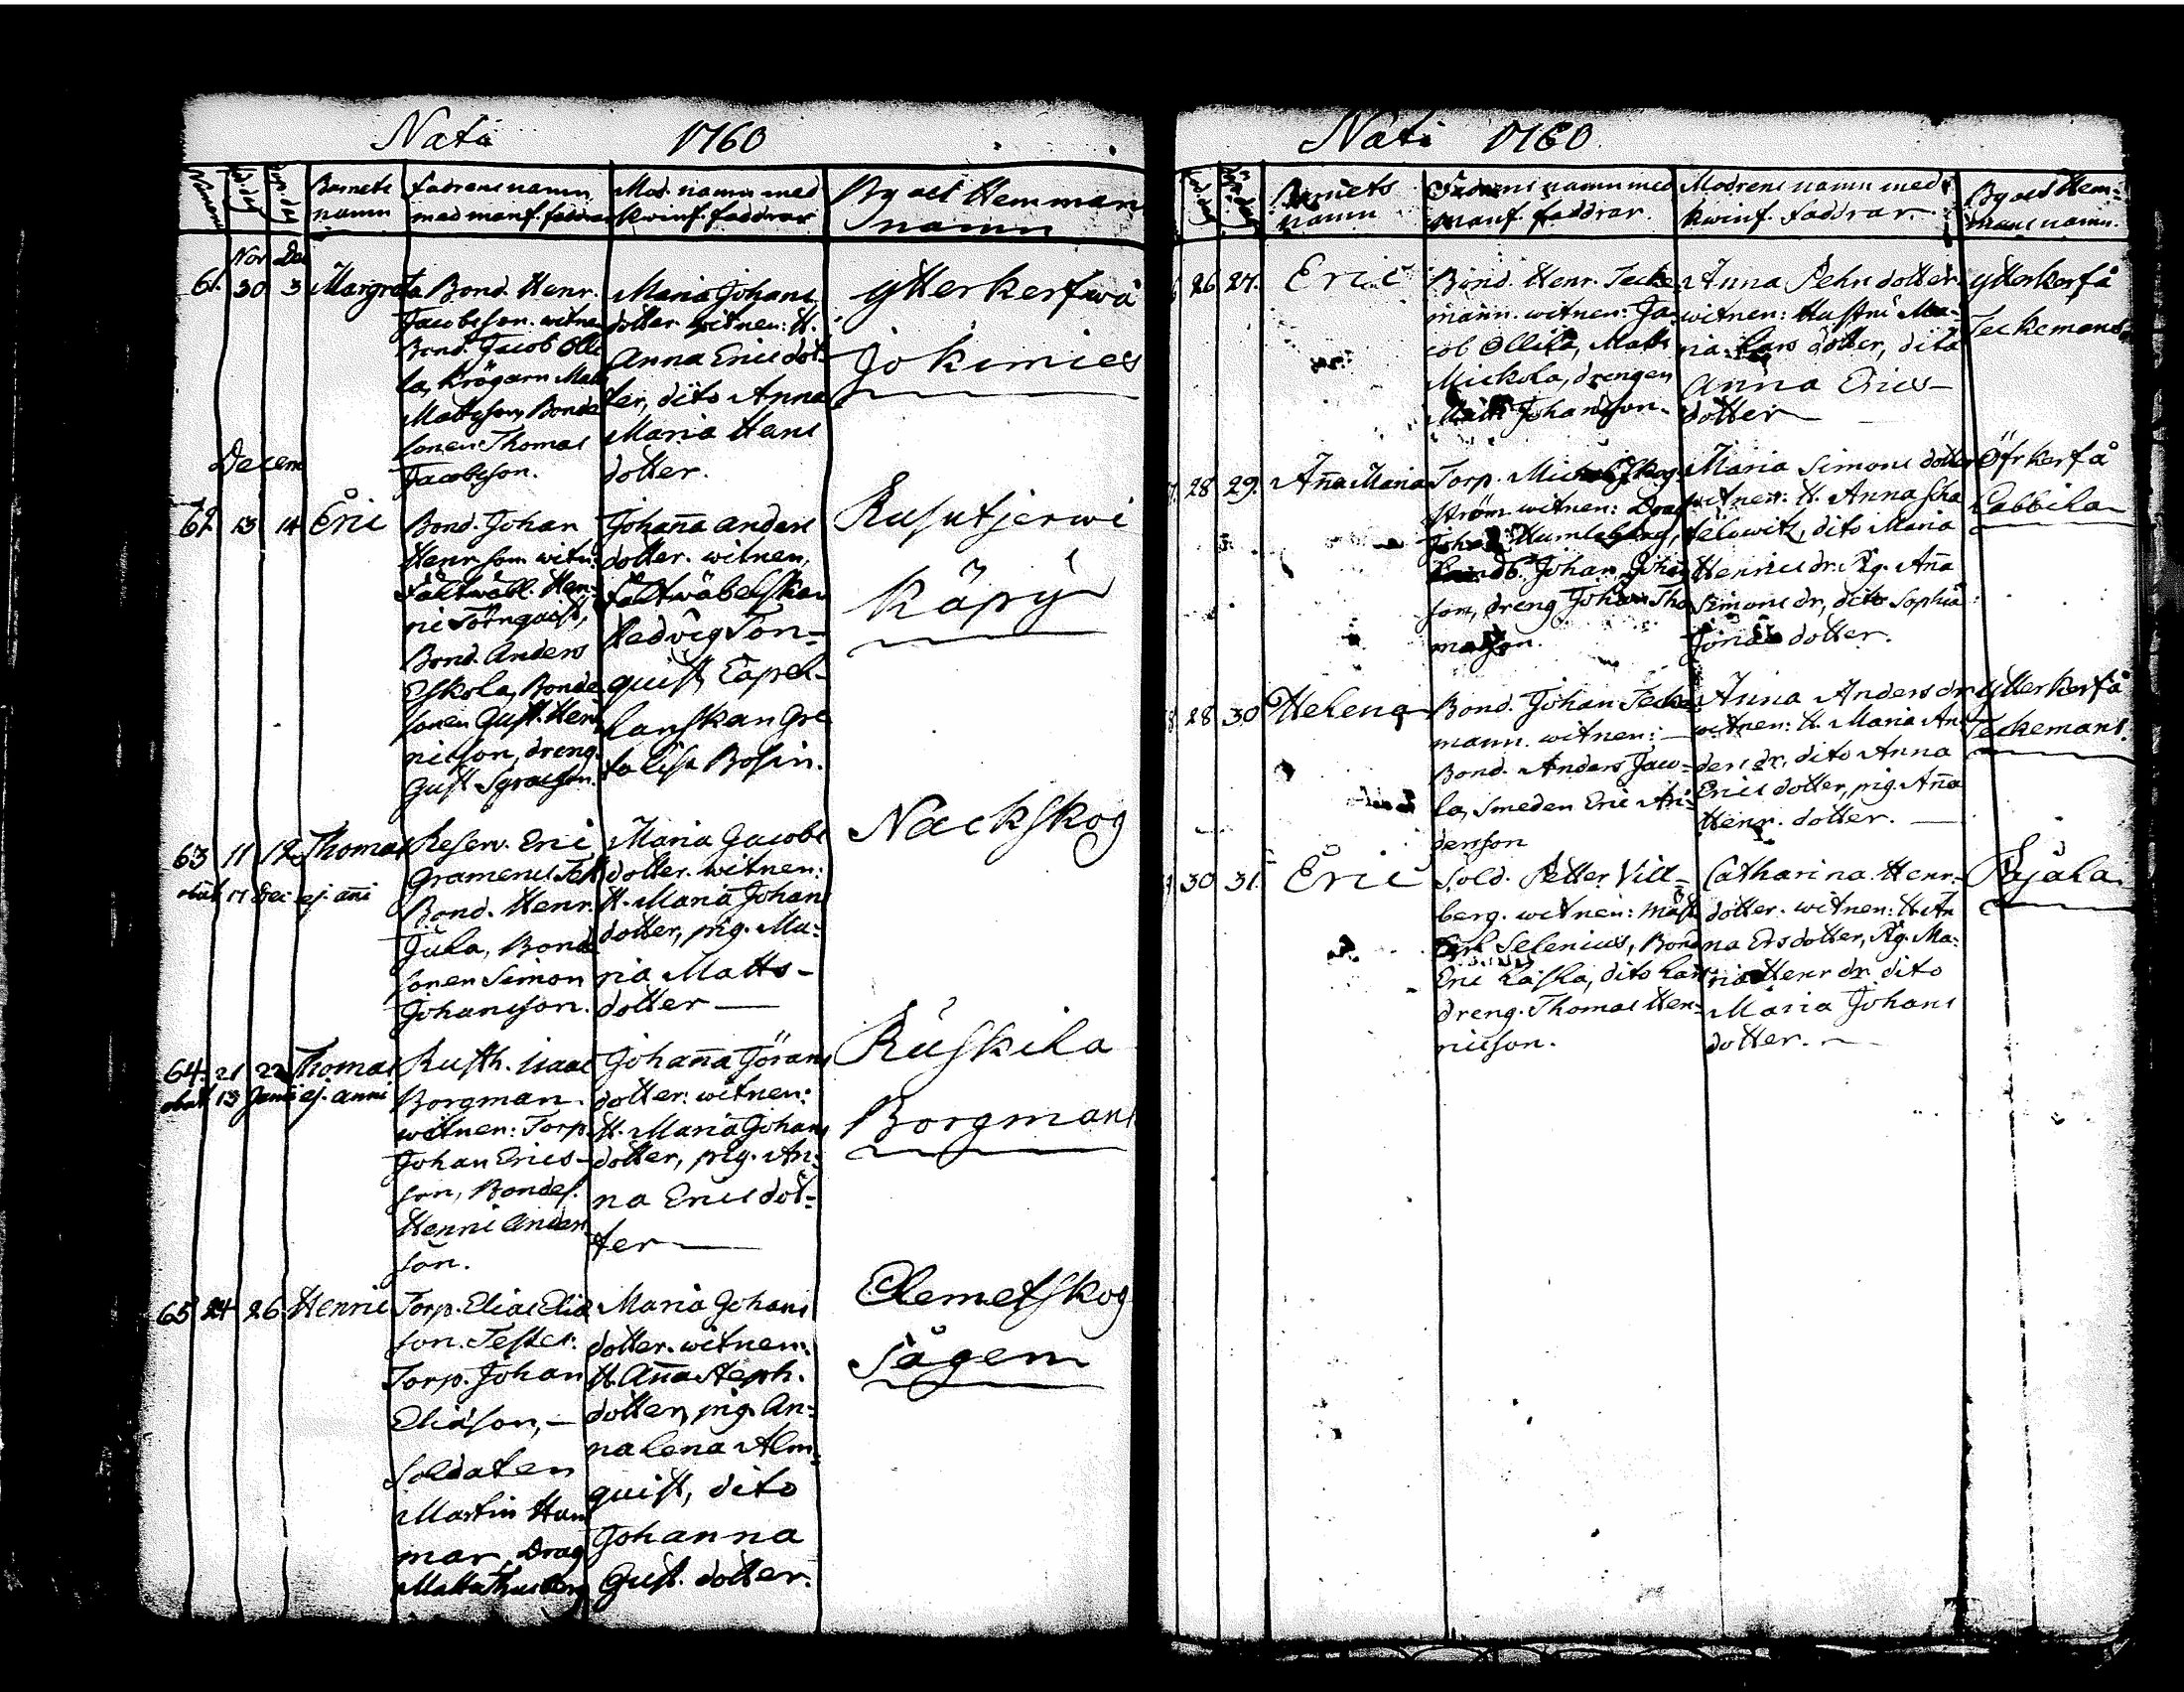 Nati 1760
Barnets namn
fadrens namn med manf. faddrar
Mod. namn med kwinf. faddrar
By och Hemmans namn
Nov Dec
61. 30 3 Margreta
Bond. Henr.
Jacobsson. witnen
Bond. Jacob Olli
la, Krögarn Matt
Mattsson, Bonde
sonen Thomas
Jacobsson.
Maria Johans
dotter. witnen: H.
Anna Erics dot
ter, dito Anna
Maria Hans
dotter.
ytterkerfwå
Jokimies
Decem
62. 13 14 Eric
Bond. Johan
Henrsson witn:
fältwäbl. Hen-
ric Törnquist,
Bond. Anders
Eskola, Bonde
sonen Gust. Hen
ricsson, dreng.
Gust
Johanna anders
dotter. witnen,
fältwäbelskan
Hedvig Törn-
quist, Capel-
lanskan Gre
ta Lisa Bosin.
Rusutjerwi
Käpy
63 11 12 Thomas
obiit 17 Dec ej. anni
Reserv. Eric
Gramens Test
Bond. Henr.
Jula, Bonde
sonen Simon
Johansson.
Maria Jacobs
dotter. witnen:
H. Maria Johans
dotter, pig. Ma:
ria Matts-
dotter
Nackskog
64. 21 22 Thomas
obiit 13 ej. anni
Rusth. Isaac
Borgman.
witnen: Torp.
Johan Erics-
son, Bondes.
Henric Anders
son.
Johanna Görans
dotter: witnen:
H. Maria Johans
dotter, pig. An:
na Erics dot-
ter
Ruskila
Borgmans
65 24 26 Henric
Torp. Elias Elia
son. Testes:
Torp. Johan
Eliasson,
Soldaten
Martin Ham
mar, Drag
Maria Johans
dotter. witnen.
H. Anna Steph.
dotter, pig. An:
na Lena Alm:
quist, dito
Johanna
Gust. dotter.
Clemetskog
Sågem
Nati 1760.
Barnets namn
Fadrens namn med manf. faddrar.
Modrens namn med kwinf. faddrar.
By och Hem-
mans namn.
26 27. Eric
Bond. Henr. Tecke
mann. witnen: Ja-
cob Ollila, Matts
Mickola, drengen
Matts Johansson.
Anna Pehrs dotter
witnen: Hustru Ma-
ria Lars dotter, dito
Anna Erics-
dotter
ytterkerfå
Teckemans
28 29. Anna Maria
Torp. Michel Skog
ström witnen: Drag
Johan Humleberg,
Johan Johans
son, dreng Johan Tho
masson.
Maria Simons dotter
witnen: H. Anna Scha
telowitz, dito Maria
Henrics dr. Pig. Anna
Simons dr, dito Sophia
Jonas dotter.
Öfrkerfå
Labbila
28 30 Helena
Bond. Johan Tecke
mann. witnen:
Bond. Anders Jaw-
la, Smeden Eric An-
dersson
Anna Anders dr
witnen: H. Maria An-
ders dr. dito Anna
Erics dotter, pig. Anna
Henr. dotter.
ytterkerfå
Teckemans.
30 31. Eric
Sold. Petter Vill-
berg. witnen: Mäst
Selenius, Bond
Eric Laska, dito Lars
dreng. Thomas Hen-
ricsson.
Catharina Henr.
dotter. witnen: H. An
na Ers dotter, Pig. Ma-
ria Henr dr dito
Maria Johans
dotter.
Kyäla